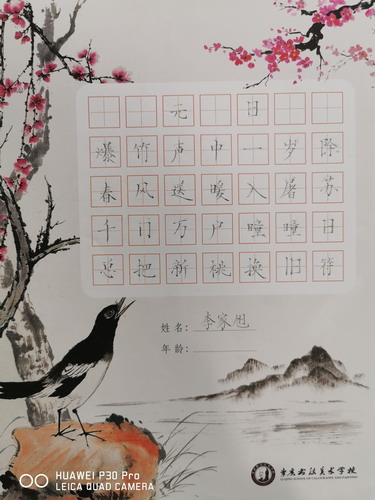 元日
爆竹声中一岁除
春风送暖入屠苏
千门万户曈曈日
总把新桃换旧符
姓名：李家旭
年龄：
重庆书法美术学校
HUAWEI P30 Pro
LEICA QUAD CAMERA